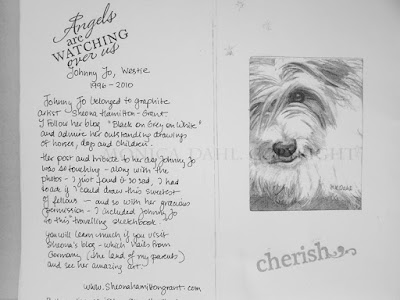 Angels
are
WATCHING
over us
Johnny Jo, Westie
1996 - 2010
Johnny Jo belonged to graphite
artist Sheona Hamilton-Grant.
I follow her blog "Black on Grey on White"
and admire her outstanding drawings
of horses, dogs and children.
Her post and tribute to her dog Johnny Jo
was so touching - along with the
photos - I just found it so sad, I had
to ask if I could draw this sweetest
of fellows - and so with her gracious
permission - I included Johnny Jo
to this travelling sketchbook.
you will learn much if you visit
Sheona's blog - which hails from
Germany (the land of my parents)
and see her amazing art.
www.Sheonahamiltongrant.com
MONICA DAHL COPYRIGHT
cherish